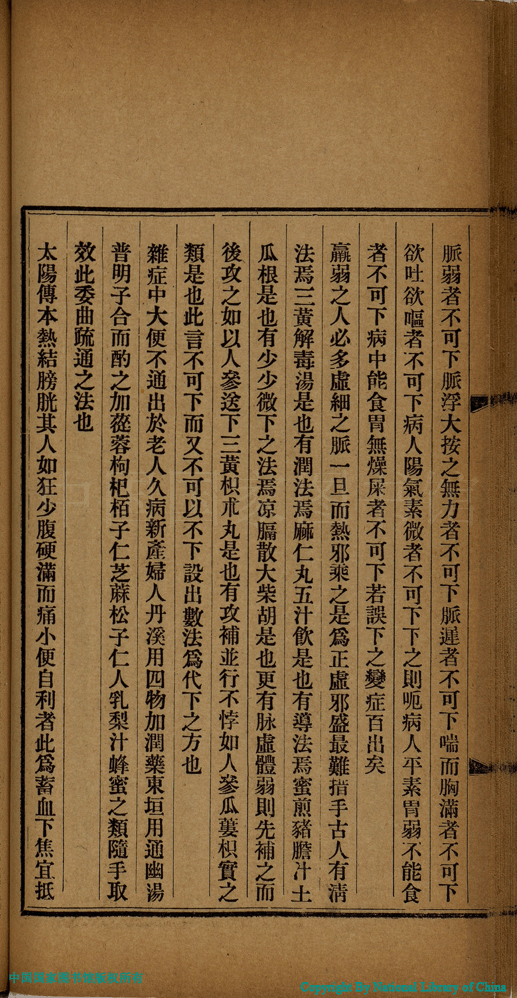 脈弱者不可下脈浮大按之無力者不可下脈遲者不可下喘而胸滿者不可下
欲吐欲嘔者不可下病人陽氣素微者不可下下之則呃病人平素胃弱不能食
者不可下病中能食胃無燥屎者不可下若誤下之變症百出矣
羸弱之人必多虛細之脈一旦而熱邪乘之是為正虛邪盛最難措手古人有淸
法焉三黃解毒湯是也有潤法焉麻仁丸五汁飲是也有導法焉蜜煎豬膽汁土
瓜根是也有少少微下之法焉凉膈散大柴胡是也更有脉虛體弱則先補之而
後攻之如以人參送下三黃枳朮丸是也有攻補並行不悖如人參瓜蔞枳實之
類是也此言不可下而又不可以不下設出數法為代下之方也
雜症中大便不通出於老人久病新產婦人丹溪用四物加潤藥東垣用通幽湯
普明子合而酌之加蓯蓉枸杞栢子仁芝蔴松子仁人乳梨汁蜂蜜之類隨手取
效此委曲疏通之法也
太陽傳本熱結膀胱其人如狂少腹硬滿而痛小便自利者此為蓄血下焦宜抵
中国国家图书馆版权所有
Copyright By National Library of China